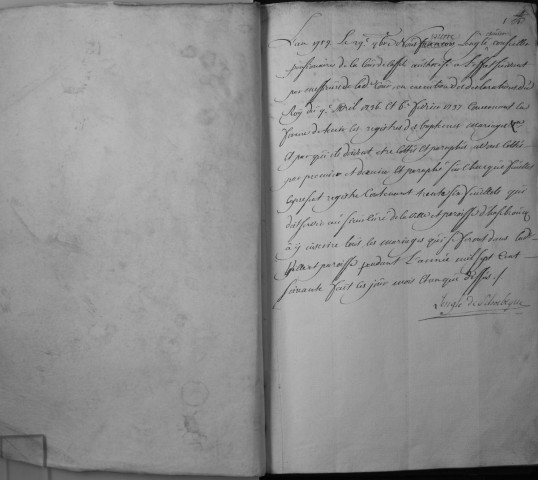 1
L'an 1759 Le 29e 9bre Nous Lenglé ainé conseiller
pensionnaire de la Cour de Cassel authorisé a l'effet suivant
par messieurs de lad. Cour en execution des declarations du
Roy du 9e Avril 1736 et 6e Fevrier 1737 Concernant la
forme de tenir les registres des baptemes mariages &c
Et par qui ils doivent etre cottés et paraphés avons cotté
par premier et dernier et paraphé sur chacque feuillet
le present registre Contenant trente six feuillets qui
doit servir au de la ville et paroisse d'hazebrouck
a y inscrire tous les mariages qui se feront dans lad.
ville et paroisse pendant L'année mil sept Cent
soixante fait les jour mois et an que dessus /
Lenglé de Schoebeque